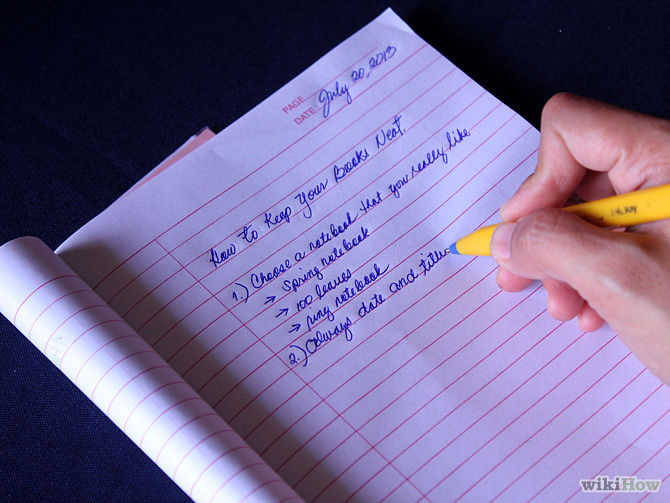 PAGE
DATE July 20, 2013
How to Keep Your Books Neat.
1.) Choose a notebook that you really like
→ Spring notebook
→ 100 leaves
→ ring notebook
2.) Always date and title
wikiHow